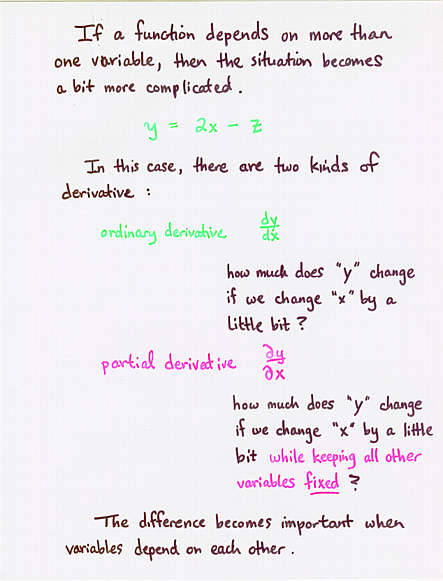 If a function depends on more than
one variable, then the situation becomes
a bit more complicated.
y = 2x - z
In this case, there are two kinds of
derivative :
ordinary derivative dy/dx
how much does "y" change
if we change "x" by a
little bit ?
partial derivative ∂y/∂x
how much does "y" change
if we change "x" by a little
bit while keeping all other
variables fixed ?
The difference becomes important when
variables depend on each other.